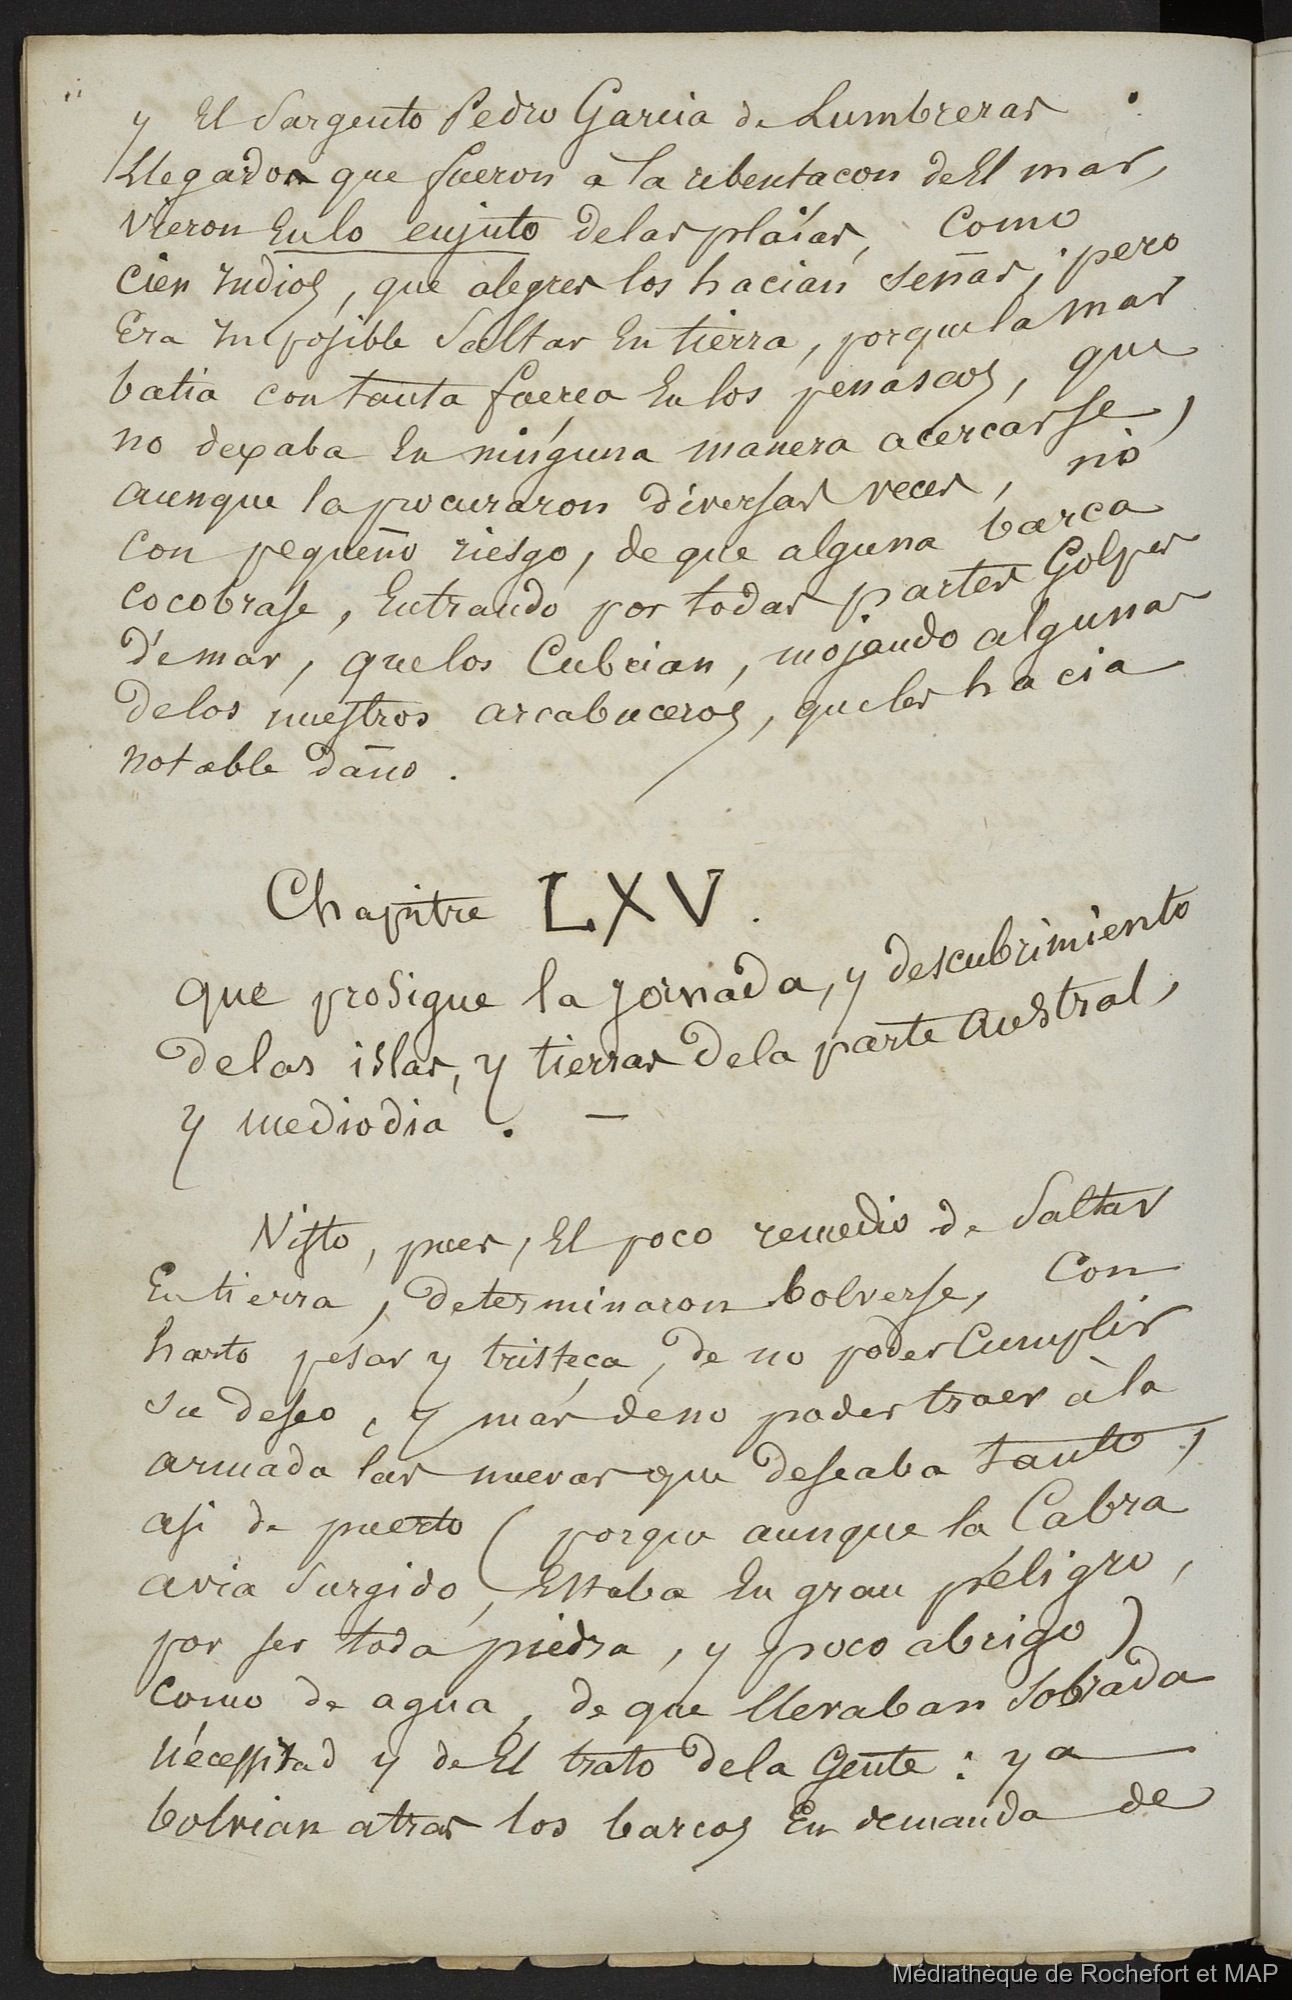 y El Sargento Pedro Garcia de Lumbreras
Llegados que fueron à la rebentacon deEl mar,
vieron Enlo enjuto delas plaias, Como
cien Indios, que alegres los hacian señas; pero
Era Imposible Saltar En tierra, porque la mar
batia con tanta fuerça En los penascos, que
no dexaba En ninguna manera acercarse,
aunque la procuraron diversas veces, nò
con pequeño riesgo, de que alguna barca
cocobrase, Entrando por todas partes Golpes
de mar, que los Cubrian, mojando algunas
delos nuestros arcabuceros, que les hacia
notable daño.
Chapitre LXV.
que prosigue la jornada, y descubrimiento
delas islas, y tierras dela parte Austral,
y mediodia. —
Visto, pues, El poco remedio de Saltar
En tierra, determinaron bolverse, Con
harto pesar y tristeça, de no poder Cumplir
su deseo, y más deno poder traer à la
armada las nuevas que deseaba tanto,
asi de puerto (porque aunque la Cabra
avia Surgido, Estaba En gran peligro,
por ser toda piedra, y poco abrigo)
como de agua, de que llevaban Sobrada
nécessitad y deEl trato dela Gente: ya
bolvian atras los barcos En demanda de
Médiathèque de Rochefort et MAP